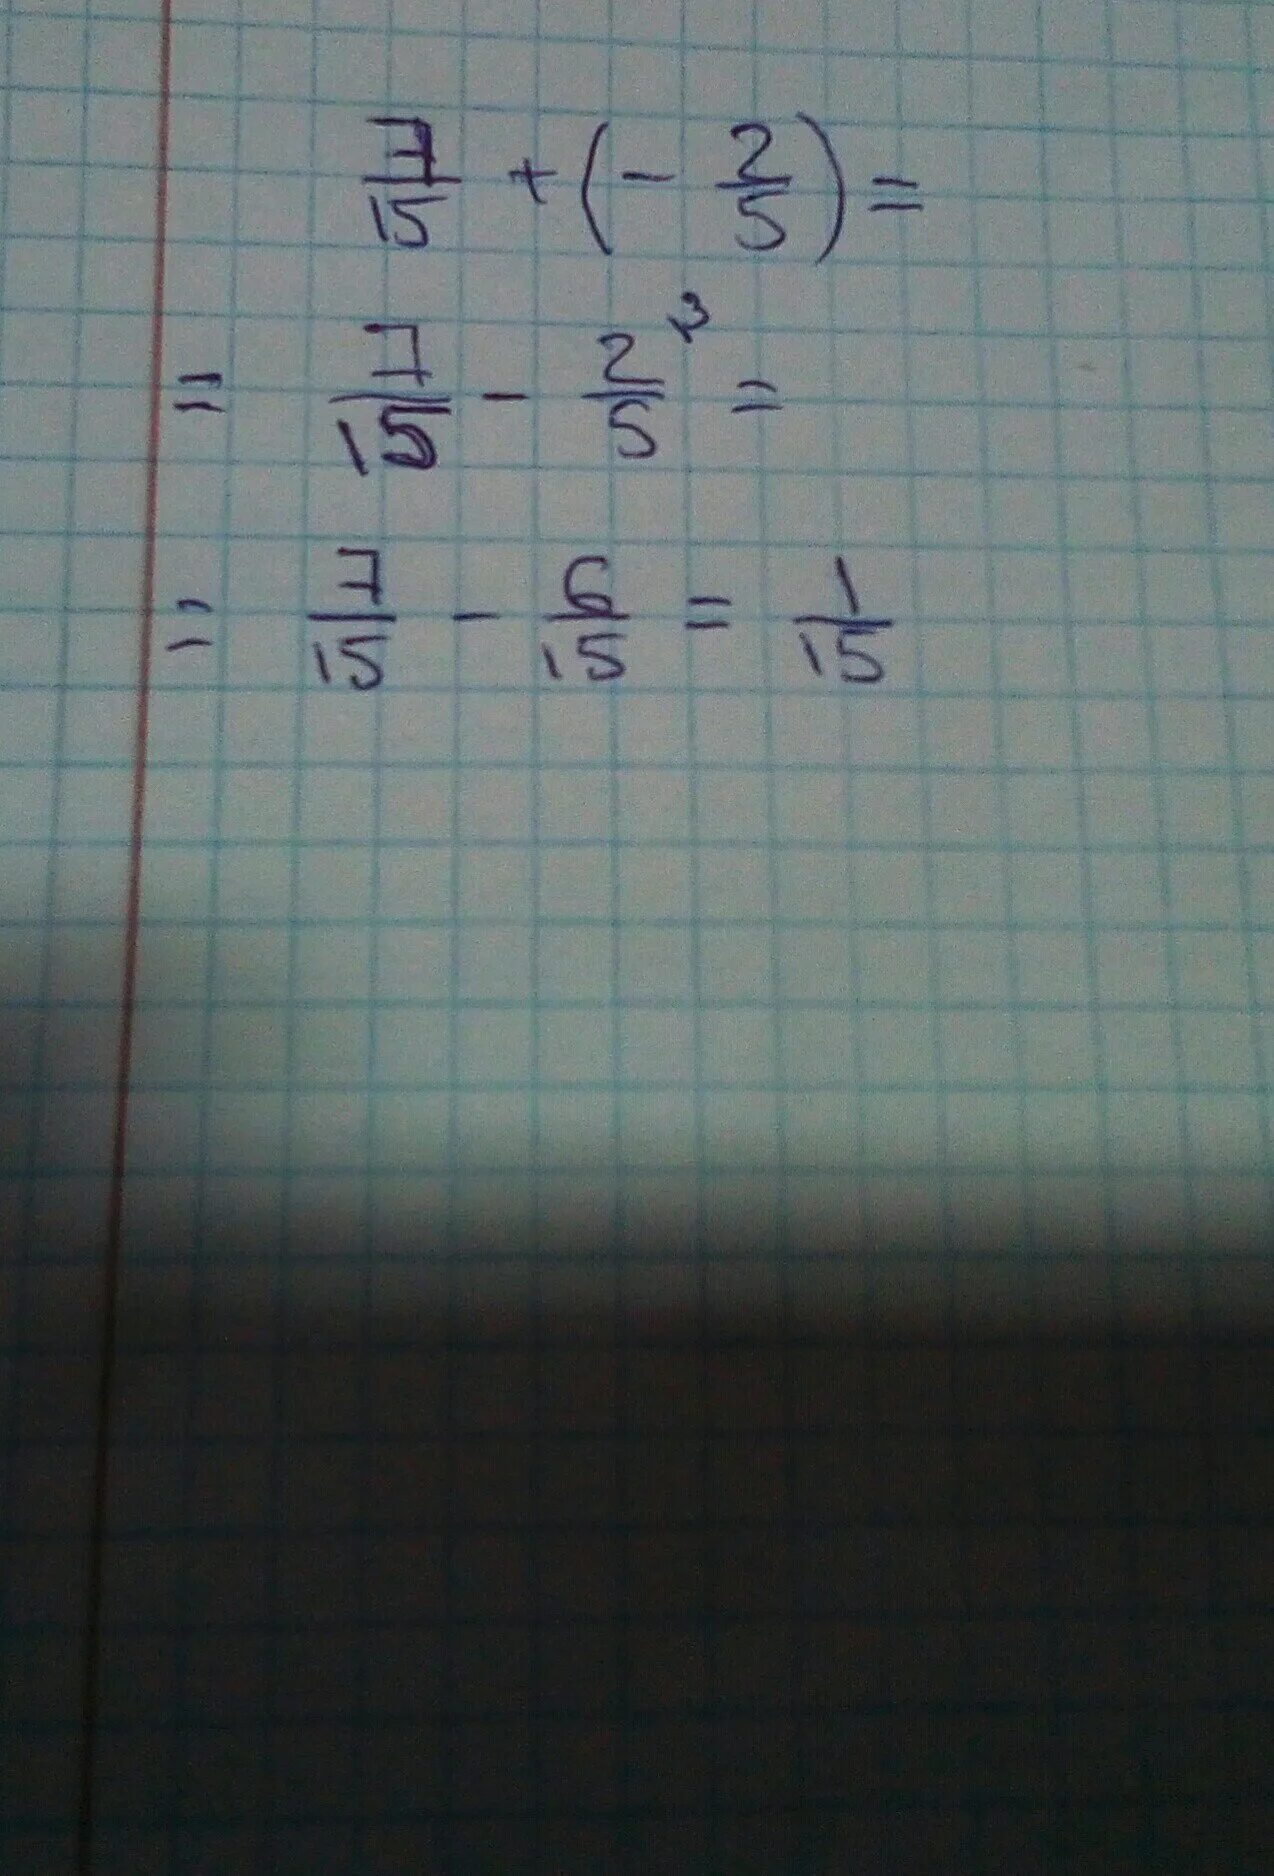 7/15 + (- 2/5) =
= 7/15 - 2/5 ³ =
= 7/15 - 6/15 = 1/15